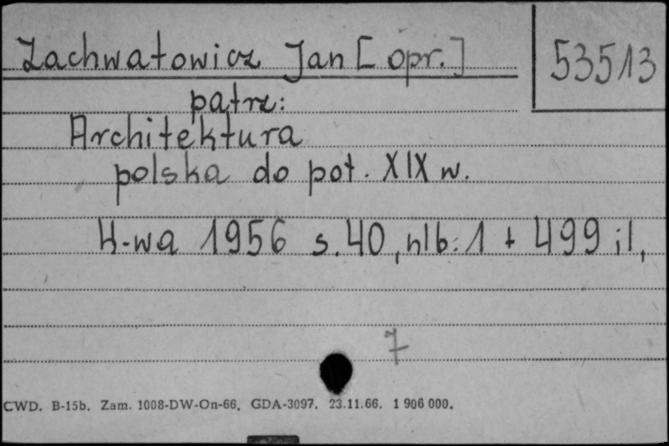 Zachwatowicz Jan [opr.]
53513
patrz:
Architektura
polska do poł. XIX w.
W-wa 1956 s. 40, nlb. 1 + 499 il,
7
CWD. B-15b. Zam. 1008-DW-On-66. GDA-3097. 23.11.66. 1 906 000.